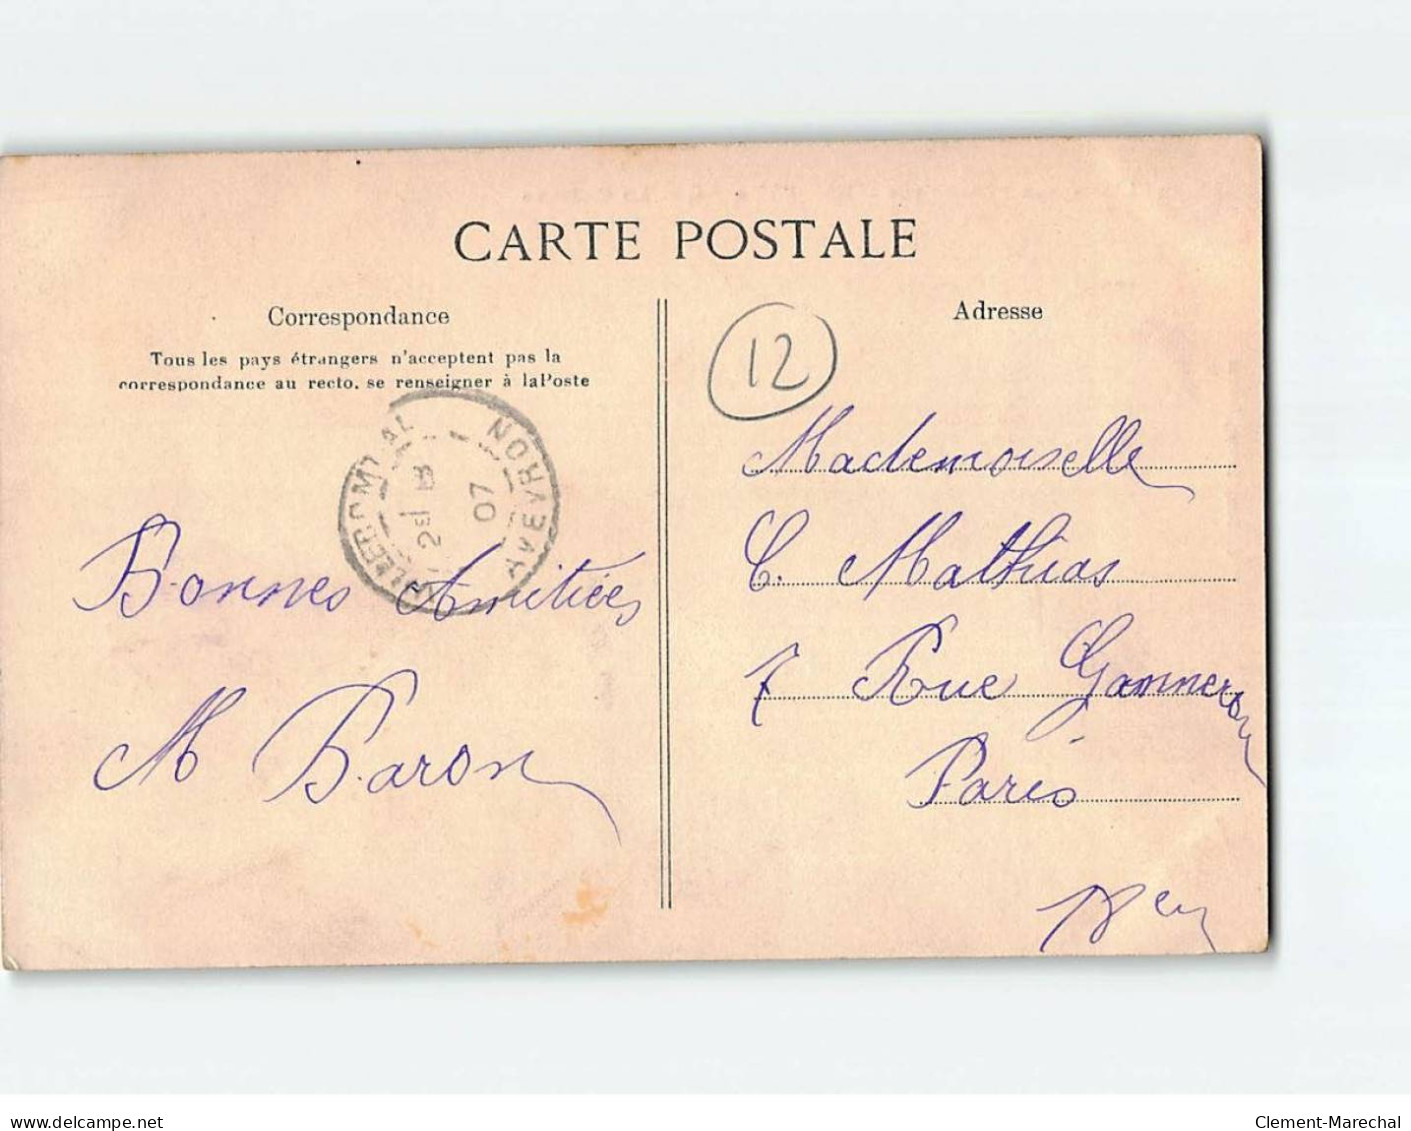 CARTE POSTALE
Correspondance
Tous les pays étrangers n'acceptent pas la
correspondance au recto. se renseigner à laPoste
AVEYRON
07
Bonnes Amitiées
M Baron
Adresse
12
Mademoiselle
C. Mathias
7 Rue Ganneron
Paris
delcampe.net
Clement-Marechal